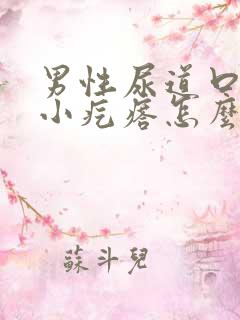 男性尿道口
小疙瘩怎麼
蘇斗兒